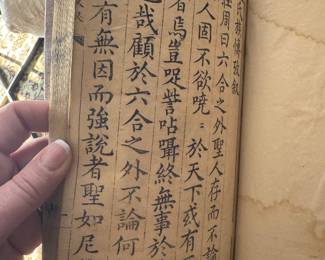 氏
莊周曰六合之外聖人存而不論
人固不欲嘵〻於天下或有
者焉豈哫訾呫囁終無事於
哉顧於六合之外不論何
有無因而強說者聖如尼